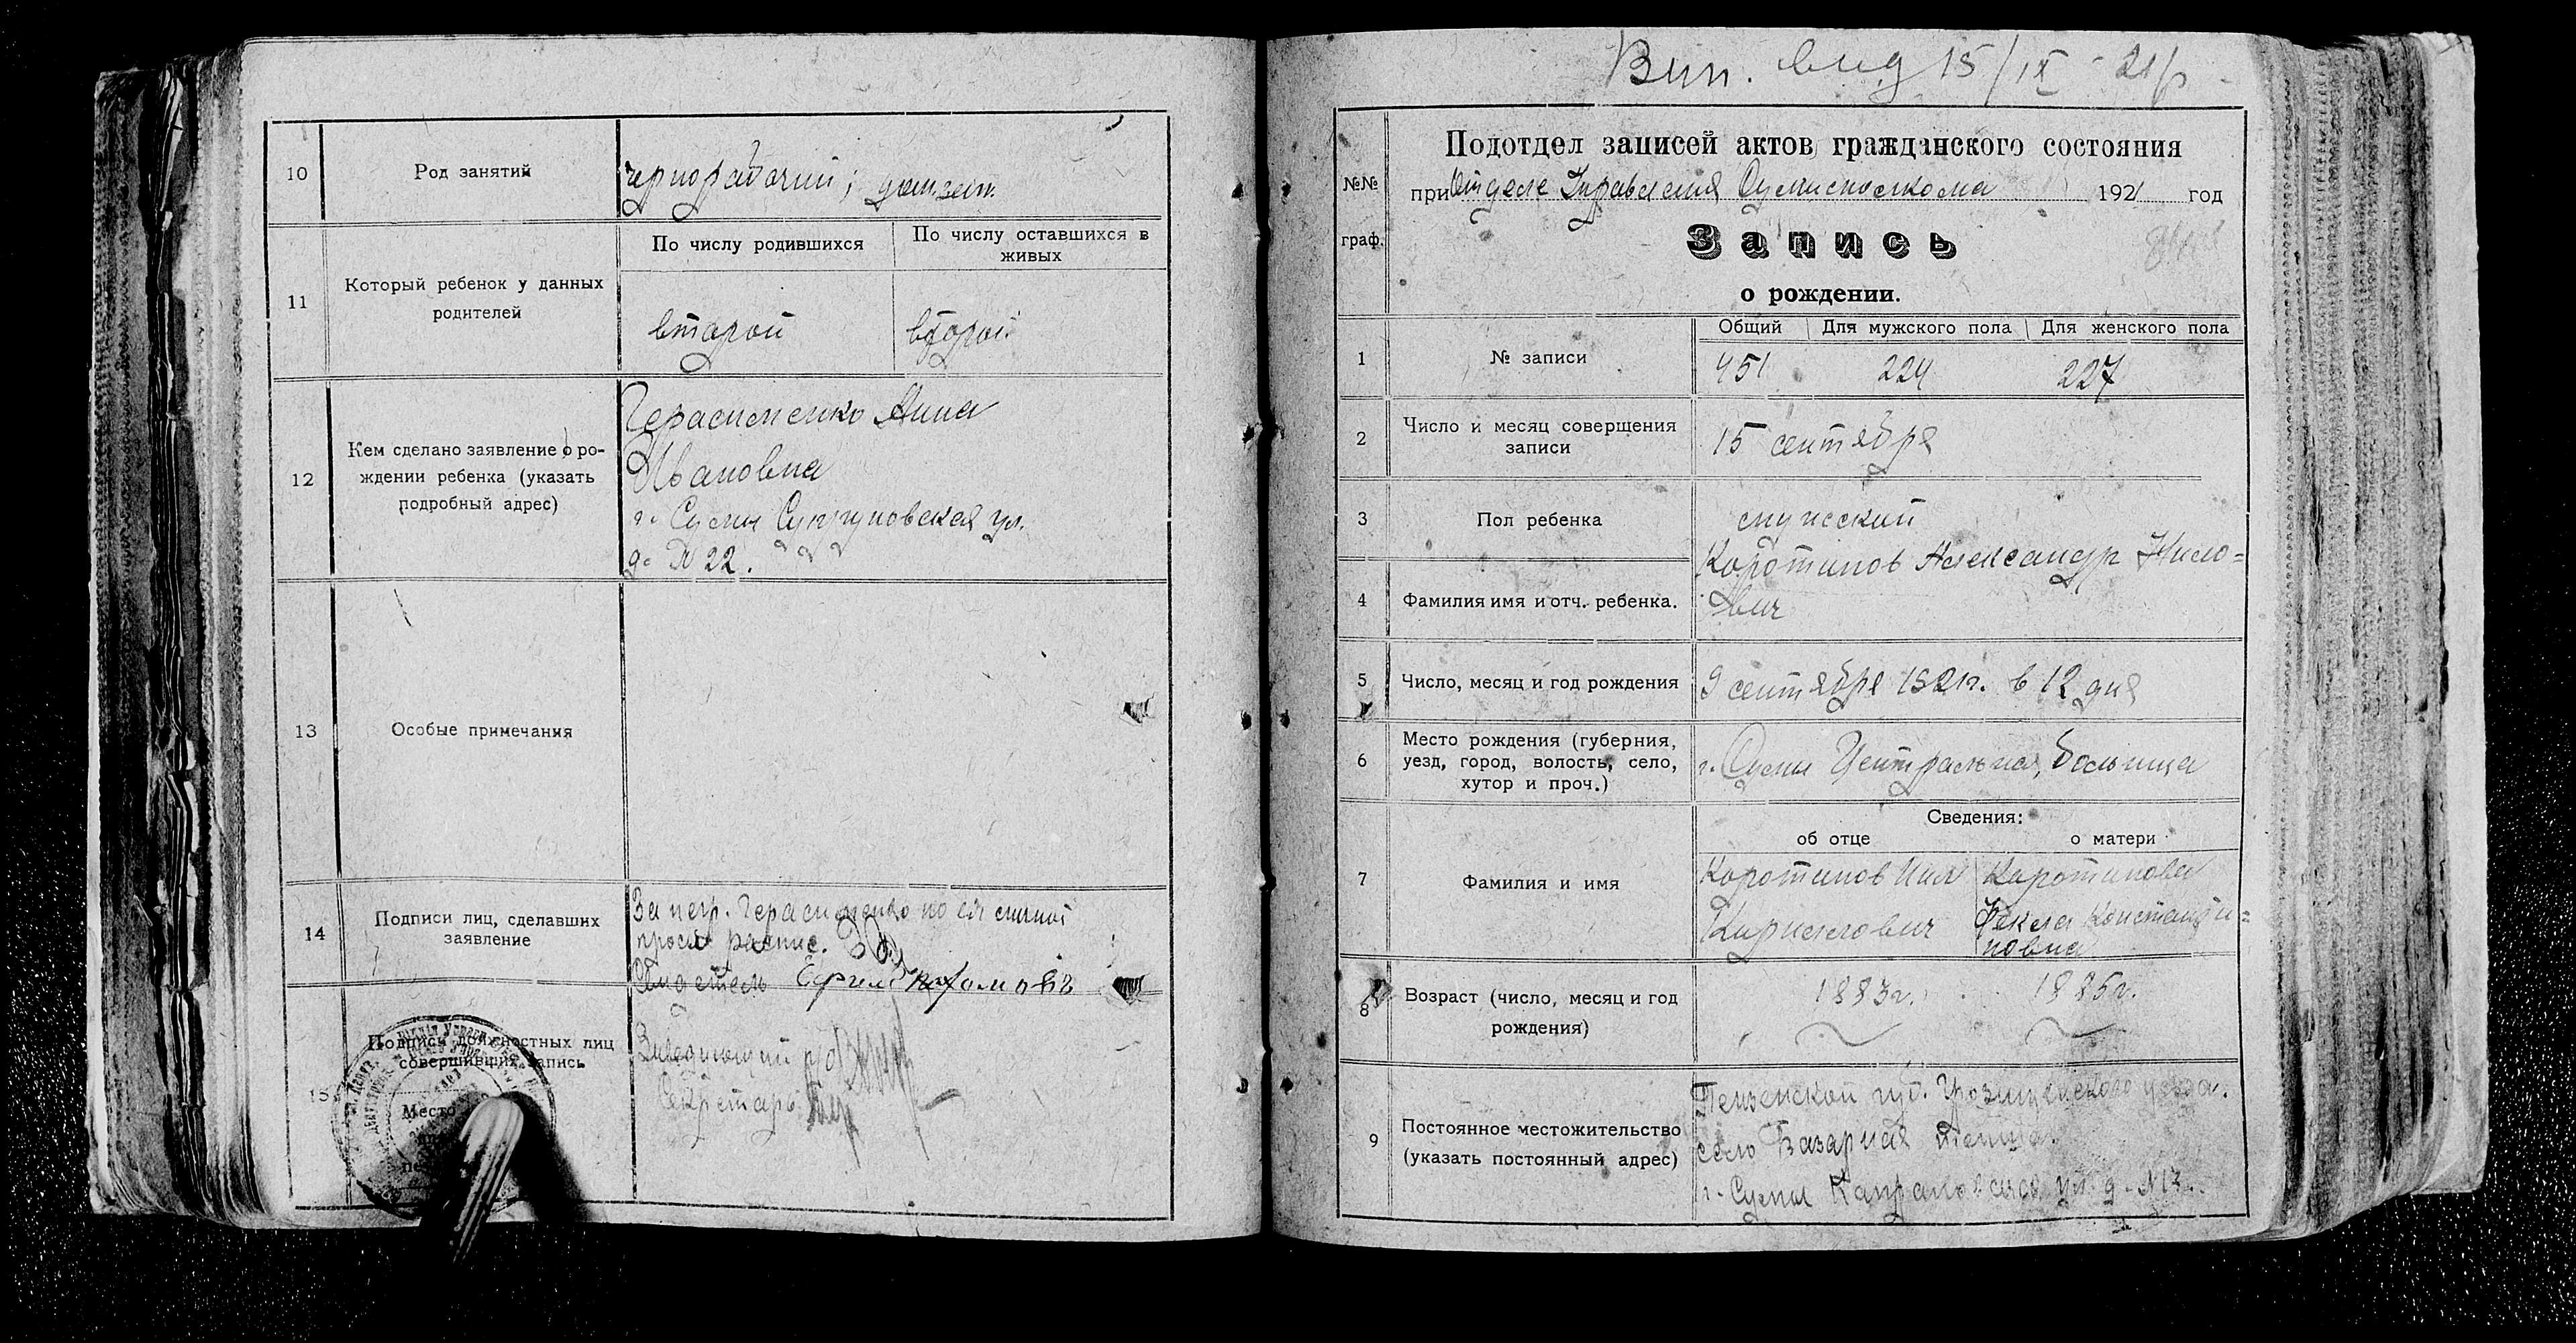 10
Род занятий
чернорабочий;
11
Который ребенок у данных
родителей
По числу родившихся
По числу оставшихся в
живых
второй
второй
12
Кем сделано заявление о ро-
ждении ребенка (указать
подробный адрес)
Герасименко Анна
Ивановна
г. Сумы Супруновская ул.
д. № 22.
13
Особые примечания
14
Подписи лиц, сделавших
заявление
За негр. Герасименко по ея личной
прось распис.
15
Подписи должностных лиц
совершивших запись
Место
Заведующий п/о
Секретарь
Вип. вид 15/IX - 21 р
№№
граф.
Подотдел записей актов гражданского состояния
при Отделе Управления Сумисполкома 1921 год
Запись
о рождении.
1
№ записи
Общий
Для мужского пола
Для женского пола
451
224
227
2
Число и месяц совершения
записи
15 сентября
3
Пол ребенка
мужской
4
Фамилия имя и отч. ребенка.
Коротинов Александр Нило=
вич
5
Число, месяц и год рождения
9 сентября 1921г. в 12 дня
6
Место рождения (губерния,
уезд, город, волость, село,
хутор и проч.)
г. Сумы Центральная больница
Сведения:
об отце
о матери
7
Фамилия и имя
Коротинов Нил
Кириллович
Коротинова
Фекла Константи=
новна
8
Возраст (число, месяц и год
рождения)
1883г.
1885г.
9
Постоянное местожительство
(указать постоянный адрес)
Пензенской губ. уезда.
село Базарная
г. Сумы ул. д. №